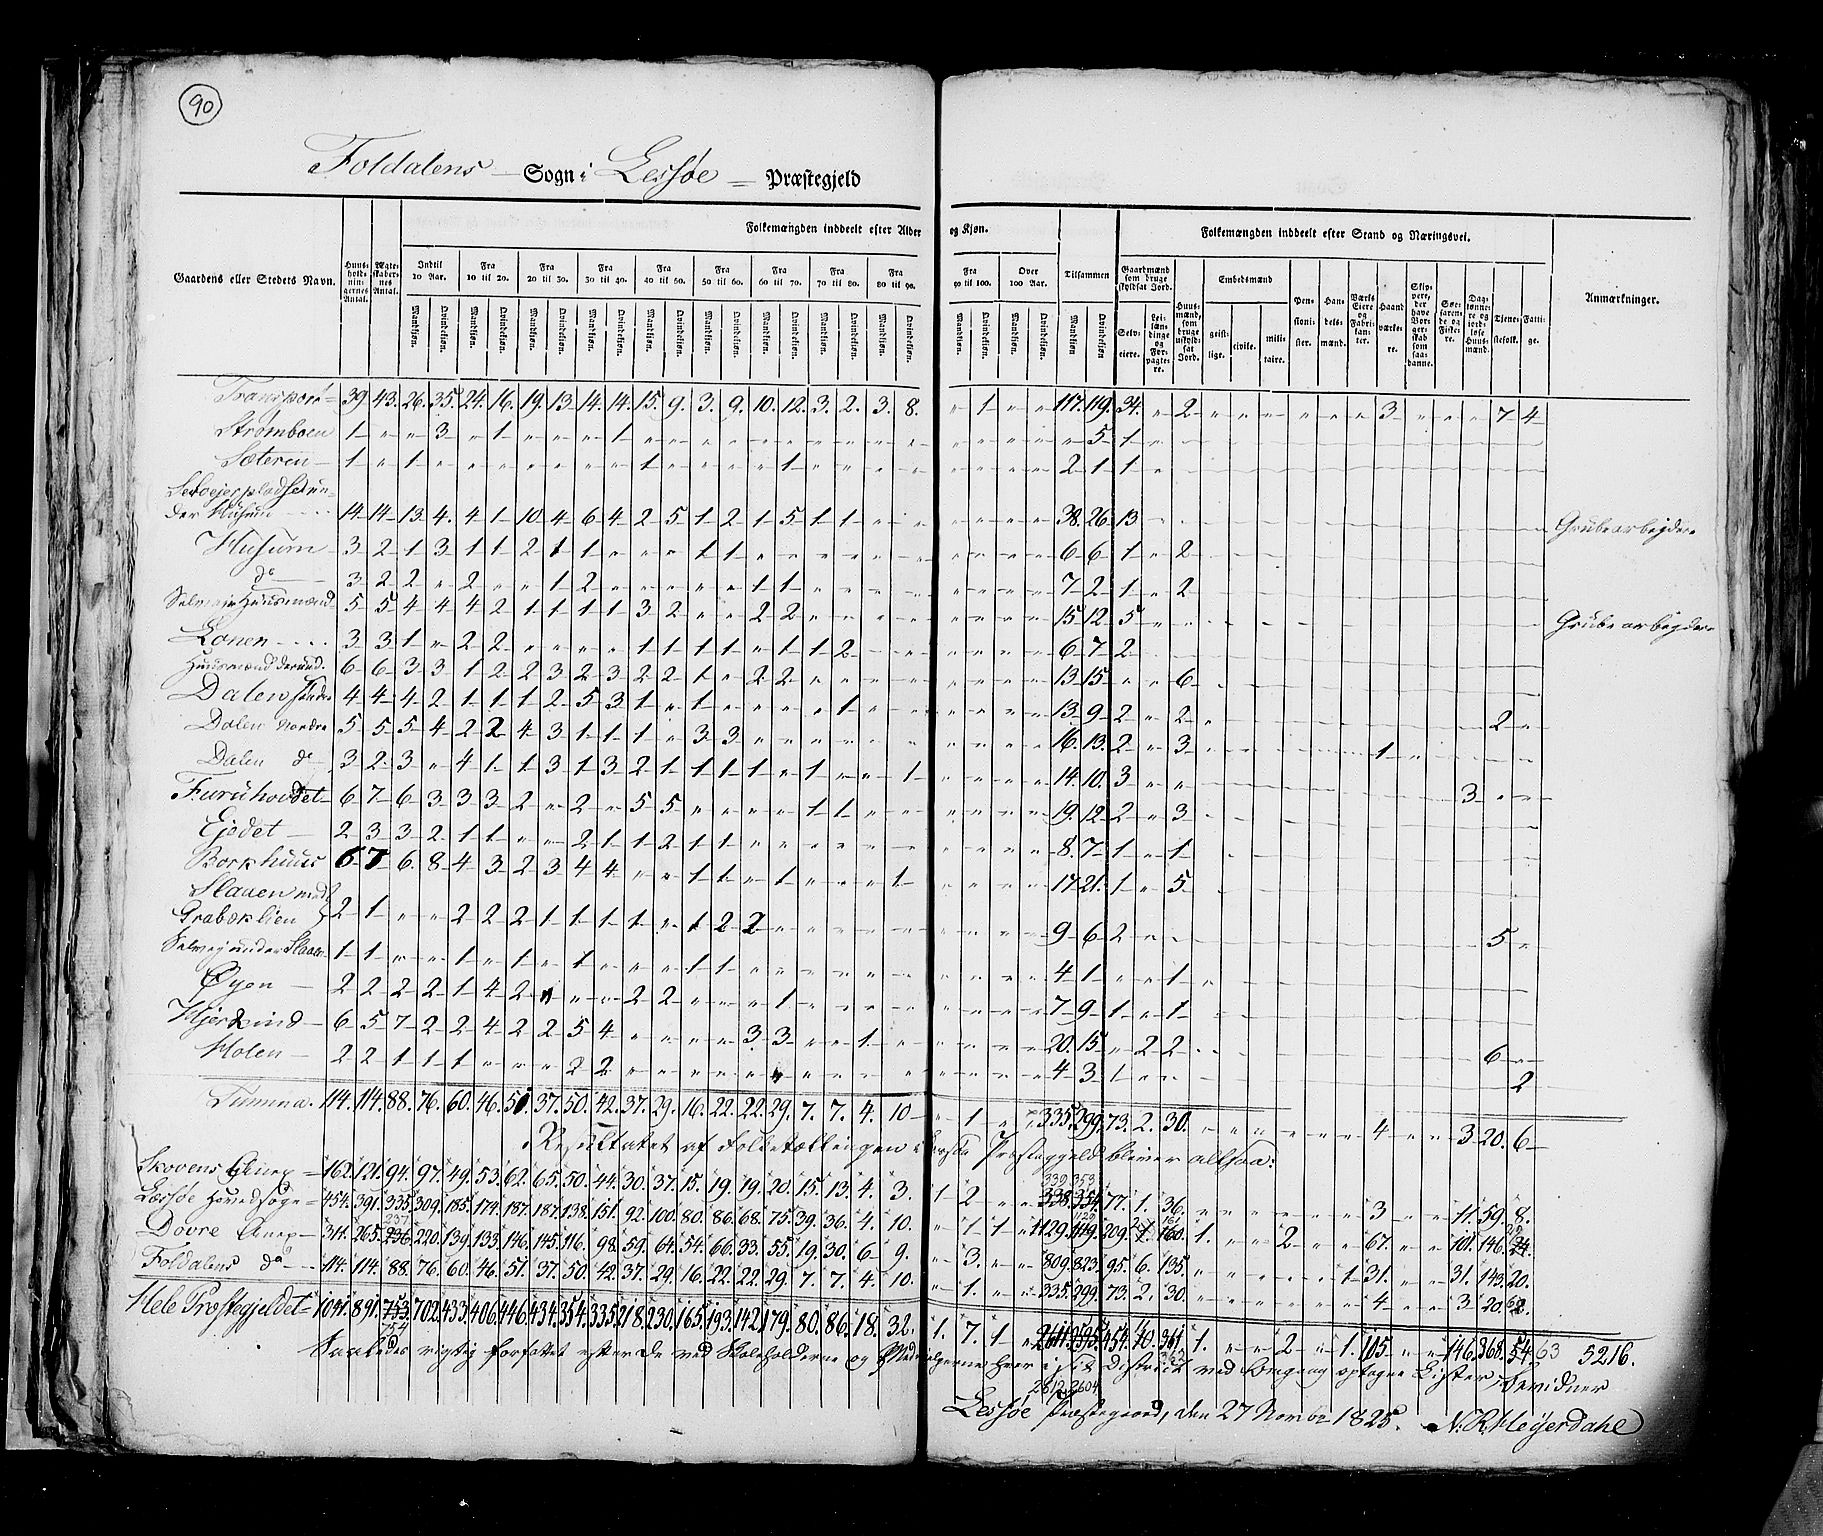 90
Foldalens Sogn i Lessøe Præstegjeld
Folkemængden inddeelt efter Alder og Kjøn.
Folkemængden inddeelt efter Stand og Næringsvei.
Gaardens eller Stedets Navn. Huus-holdnin-gernes Antal. Ægte-skaber-nes Antal. Indtil 10 Aar. Fra 10 til 20. Fra 20 til 30. Fra 30 til 40. Fra 40 til 50. Fra 50 til 60. Fra 60 til 70. Fra 70 til 80. Fra 80 til 90. Fra 90 til 100. Over 100 Aar. Tilsammen Gaardmænd som bruge skyldsat Jord. Huus-mænd, som bruge uskyld-sat Jord. Embedsmænd Pen-sioni-ster. Han-dels-mænd. Værks Eiere og Fabri-kan-ter. Haand-værke-re. Skip-pere, der have Bor-ger-skab som saa-danne. Søe-faren-de og Fiske-re. Dag-lønne-re og jord-løse Huus-mænd. Tjene-stefolk. Fatti-ge. Anmærkninger.
Mandkjøn. Qvindekjøn. Selv-eiere. Lei-læn-dinge og For-pagte-re. geist-lige. civile. mili-taire.
Transport 39 43 26. 35. 24. 16. 19. 13 14. 14. 15. 9. 3. 9. 10. 12. 3. 2. 3. 8. " 1 " " 117. 119. 34. " 2 3 7 4
Strømboen 1 " " 3 " 1 " " " 1 " 5 1
Sæteren 1 " 1 " 1 " 1 " 2 1 1
Selveierpladser un-
der Husum 14 14 13. 4. 4 1 10 4 6 4 2 5 1 2 1 5 1 1 " " 38. 26. 13 Grubearbeydere
Husum 3 2 1 3 1 1 2 1 1 " " " 1 1 " 6 6 1 " 2
do 3 2 2 " 2 " " 1 2 " 1 1 " 7 2 1 " 2
Selveie Huusmænd 5 5 4 4 4 2 1 1 1 1 3 2 " " 2 2 " 15 12 5 Grubearbeydere
Lonen 3 3 1 " 2 2 " " " " 1 1 1 1 " 1 1 2 " 6 7 2
Huusmænd derund. 6 6 3 3 1 2 2 3 2 3 2 2 1 " 2 2 " 13 15 " " 6
Dalen søndre 4 4 4 2 1 1 1 2 5 3 1 " 1 " " " 1 " 13 9 2 " 2 2
Dalen Nordre 5 5 5 4 2 2 4 3 1 1 1 " 3 3 " 16. 13. 2 " 3 1
Dalen do 3 2 3 " 4 1 1 3 1 3 2 1 1 1 1 " 1 " " 1 14. 10. 3
Furuhovdet 6 7 6 3 3 3 2 " 2 " 5 5 " " " " 1 1 " 19. 12 2 " 3 3
Ejedet 2 3 3 2 1 1 " " 2 1 1 2 1 1 " 8. 7 1 " 1
Borkhuus 6 7 6 8 4 3 2 3 4 4 " " 1 1 " 1 " " " 1 17 21. 1 " 5
Slaaen med
Grabæklien 2 1 " " 2 2 2 1 1 1 1 " 1 2 2 " 9 6 2 5
Selvej under Slaaen 1 1 " " 1 " 1 " 1 " " " 1 1 " 4 1 " " 1
Øyen 2 2 2 2 1 4 2 " " " 2 2 " " " 1 " 7 9 1 " 1
Hjerkind 6 5 7 2 2 4 2 2 5 4 " " " " 3 3 " " 1 " 20. 15 " 2 2 6
Molen 2 2 1 1 1 " " " 2 2 " 4 3 1 2
Summa. 114. 114. 88. 76. 60. 46. 51 37. 50. 42. 37. 29. 16. 22. 22. 29. 7. 7. 4. 10 " 1 " " 335. 299. 73. 2. 30. 4 3 20. 6
Resultatet af Folketællingen i Lessøe Præsteggeld bliver altsaa:
339 353
Skovens Annex 162. 121. 94. 97. 49. 53. 62. 65. 50. 44. 30. 37. 15. 19. 19. 20. 15. 13. 4. 3. 1 2 " " 338. 354. 77. 1. 36. 3 11. 59. 8.
Læssøe Hovedsogn 454. 391. 335. 309. 185. 174. 187. 187. 138. 151. 92. 100. 80. 86. 68. 75. 39. 36. 4. 10. " 1 1 " 1129. 1119. 209. 1 160. 1. 2 67. 101. 146. 24.
Dovre Annex 311. 265. 236. 220. 139. 133. 146. 145. 116. 98. 59. 64. 54. 66. 33. 55. 19. 30. 6 9. " 3. " " 809. 823. 95. 6. 135. 1 31. 31. 143. 20.
Foldalens do 114. 114. 88. 76. 60. 46. 51. 37. 50. 42. 37. 29. 16. 22. 22. 29. 7. 7. 4. 10. " 1. " " 335. 299. 73. 2. 30. 4 3 20.
Hele Præstegjeldet 1041. 891. 753. 702. 433. 406. 446. 434. 354. 335. 218. 230. 165. 193. 142. 179. 80. 86. 18. 32. 1. 7. 1 " 2611. 2595. 454. 10. 361. 1. 2 1. 105 146. 368. 54. 63 5216.
754
Saaledes rigtig forfattet efter de ved Skoleholderne og Medhielperne hver i sit District ved Omgang optagne Lister, bevidner
2612. 2604
Lessøe Præstegaard, den 27 Novembr. 1825. N. R. Meyerdahl